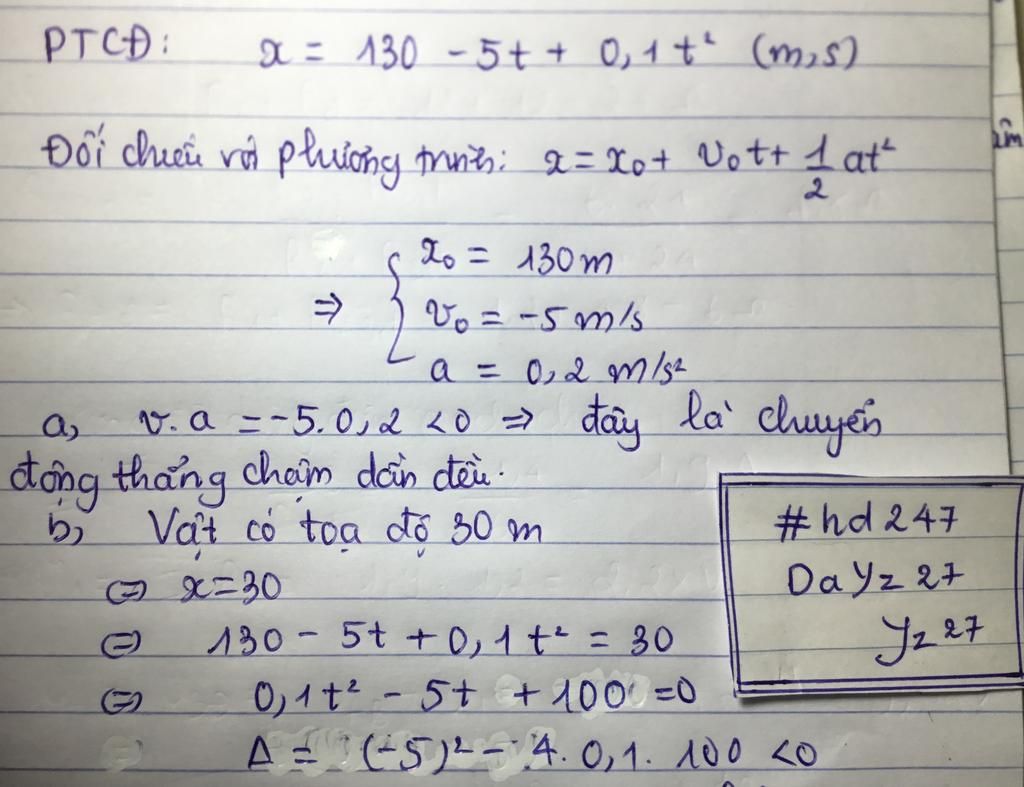 PTCĐ: x = 130 - 5t + 0,1t² (m,s)
Đối chiếu với phương trình: x = x₀ + v₀t + 1/2 at²
⇒ { x₀ = 130m
v₀ = -5 m/s
a = 0,2 m/s²
a, v.a = -5.0,2 <0 ⇒ đây là chuyển
động thẳng chậm dần đều.
b, Vật có toạ độ 30 m
⇔ x=30
⇔ 130 - 5t + 0,1t² = 30
⇔ 0,1t² - 5t + 100 =0
Δ = (-5)² - 4. 0,1. 100 <0
#hd247
DaYz27
Yz27